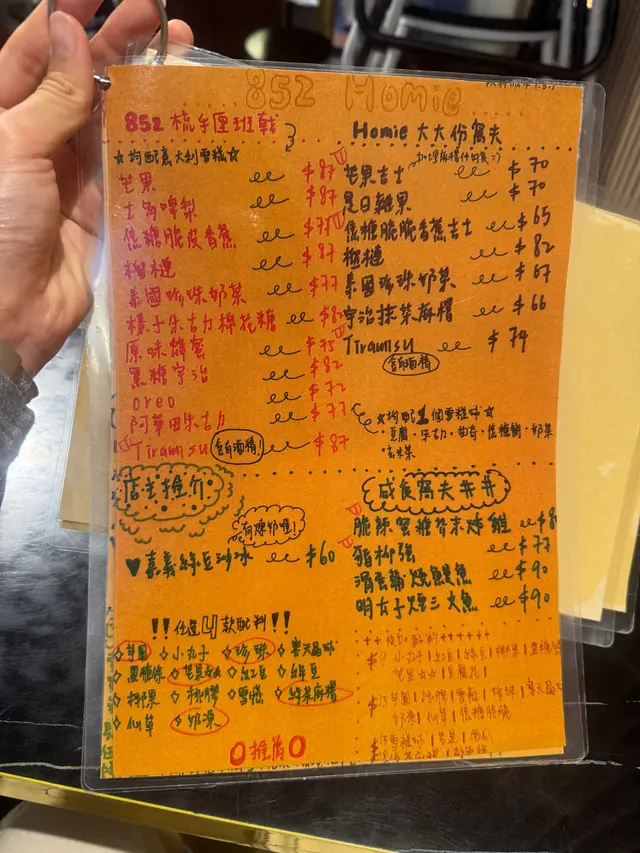 852 Homie
852 梳乎厘班戟
☆均配意大利雪糕☆
芒果 $87
士多啤梨 $87
焦糖脆皮香蕉 $77
榴槤 $87
泰國珍珠奶茶 $77
榛子朱古力棉花糖 $82
原味蜂蜜 $75
黑糖宇治 $82
oreo $72
阿華田朱古力 $77
Tiramisu 含有酒精! $87
Homie 大大份窩夫
芒果吉士 $70
是日雜果 $70
焦糖脆脆香蕉吉士 $65
榴槤 $82
泰國珍珠奶茶 $67
宇治抹茶麻糬 $66
Tiramisu $74
含有酒精
☆均配1個雪糕球☆
·豆腐·朱古力·曲奇·焦糖·奶茶
·玄米茶
店主推介
有煉奶喔!
♥嘉義綠豆沙冰 $60
!!任選4款配料!!
◇芋圓 ◇小丸子 ◇珍珠 ◇寒天晶球
◇黑糖條 ◇紅豆 ◇綠豆
◇椰果 ◇桃膠 ◇雪燕 ◇綠茶麻糬
◇仙草 ◇奶凍
O推薦O
咸食窩夫
脆辣蜜糖芥末炸雞
豬柳強 $77
滑蛋鵝燒鰻魚 $90
明太子煙三文魚 $90
小丸子|紅豆|綠豆|椰果|黑糖
$15芋圓|桃膠|雪燕|珍珠|寒天晶
奶凍|仙草|焦糖脆脆